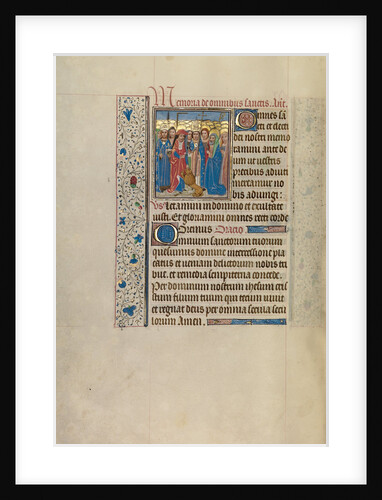 Memoria de omnibus sanctis. Añt.
Omnes sā
cti et electi
dei nostri memo
ramini ante de
um ut vestris
precibus adiuti
mereamur no
bis adiungi:
vs Letamini in domino et exultate
iusti. Et gloriamini omnes recti corde
Oremus Oratio
Omnium sanctorum tuorum
quesumus domine intercessione pla
catus et veniam delictorum nobis tri
bue et remedia sempiterna concede.
Per dominum nostrum ihesum cris
tum filium tuum qui tecum vivit
et regnat deus per omnia secula secu
lorum Amen.